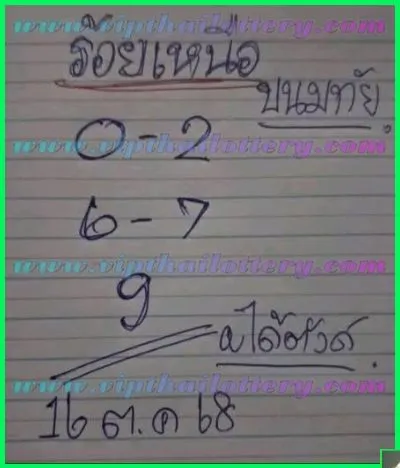 www.vipthailottery.com
ร้อยเหนือ
บนมหาชัย
0-2
www.vipthailottery.com
6-7
www.vipthailottery.com
9
www.vipthailottery.com
16 ต.ค 68